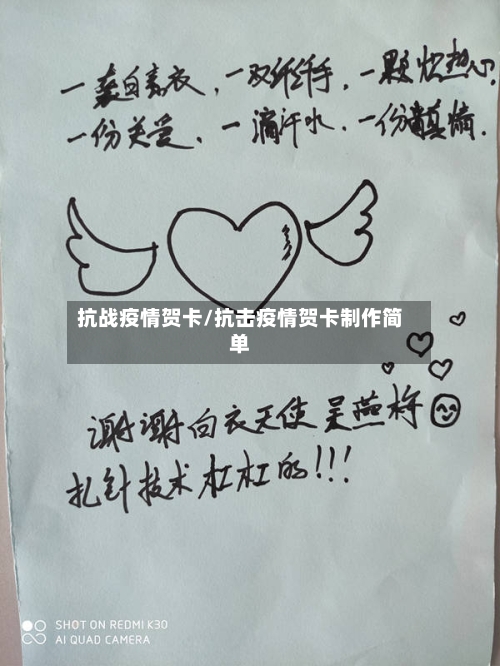 一袭白素衣，一双纤纤手，一颗炽热心，
一份关爱，一滴汗水，一份真情．
抗战疫情贺卡/抗击疫情贺卡制作简
单
谢谢白衣天使吴燕梅
扎针技术杠杠的!!!
SHOT ON REDMI K30
AI QUAD CAMERA